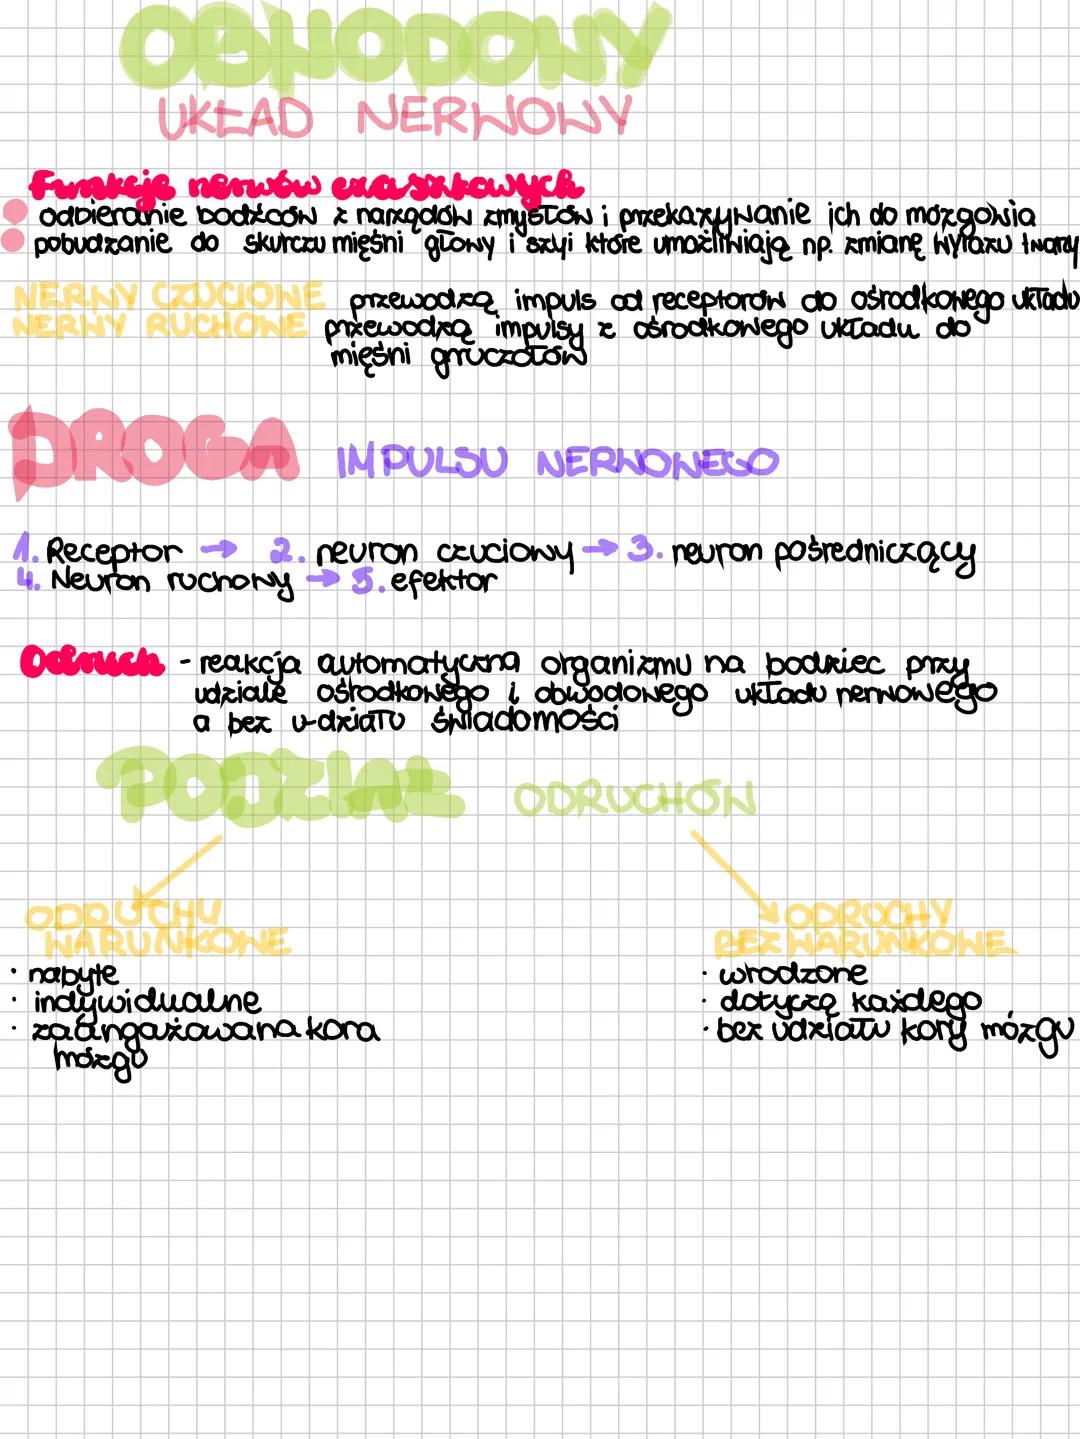 OBWODOWY
UKŁAD NERWOWY
Funkcje nerwów czaszkowych
odbieranie bodźców z narządów zmysłów i przekazywanie ich do mózgowia
pobudzanie do skurczu mięśni głowy i szyi które umożliwiają np. zmianę wyrazu twarzy
NERWY CZUCIOWE przewodzą impuls od receptorów do ośrodkowego układu
NERWY RUCHOWE przewodzą impulsy z ośrodkowego układu do
mięśni gruczołów
DROGA IMPULSU NERWOWEGO
1. Receptor → 2. neuron czuciowy → 3. neuron pośredniczący
4. Neuron ruchowy → 5. efektor
Odruch - reakcja automatyczna organizmu na bodziec przy
udziale ośrodkowego i obwodowego układu nerwowego
a bez u-działu świadomości
PODZIAŁ ODRUCHÓW
ODRUCHU
WARUNKOWE
· nabyte
· indywidualne
· zaangażowana kora
mózgu
ODRUCHY
BEZWARUNKOWE
· wrodzone
· dotyczą każdego
· bez udziału kory mózgu